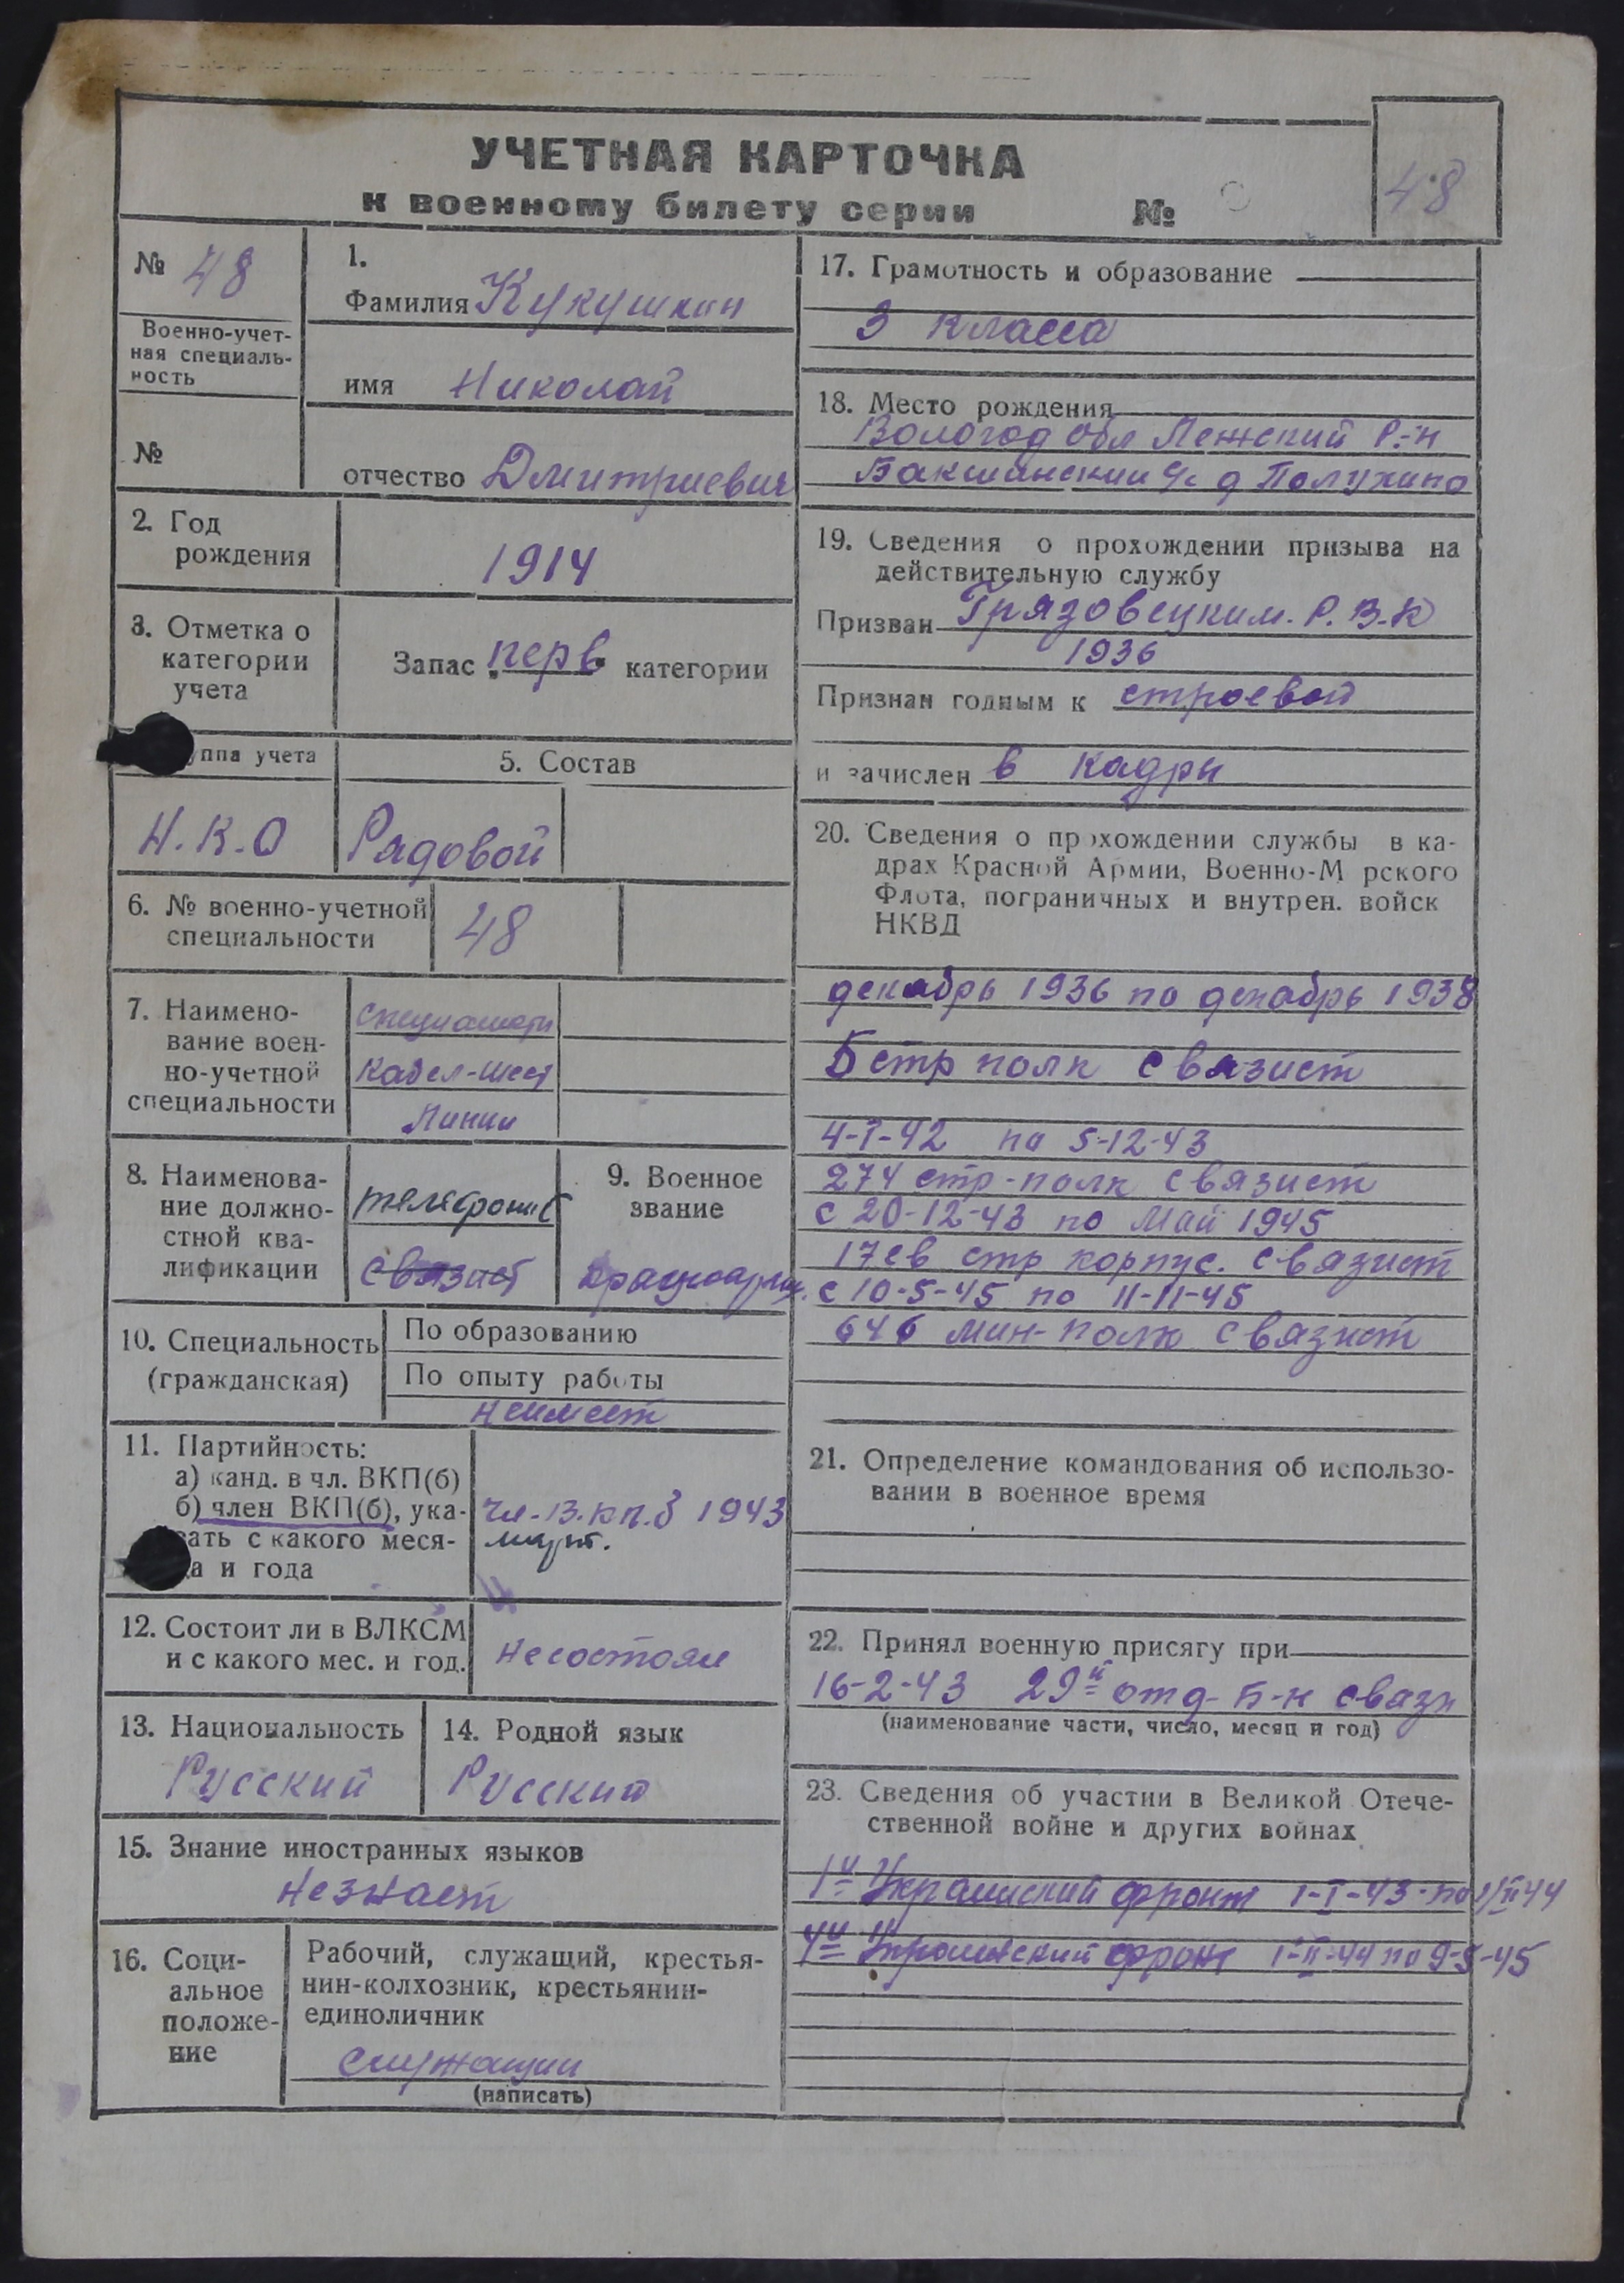 УЧЕТНАЯ КАРТОЧКА
к военному билету серии №
48
№ 48
Военно-учет-
ная специаль-
ность
№
1.
Фамилия Кукушкин
имя Николай
отчество Дмитриевич
2. Год
рождения
1914
3. Отметка о
категории
учета
Запас перв категории
уппа учета
Н.К.О
5. Состав
Рядовой
6. № военно-учетной
специальности
48
7. Наимено-
вание воен-
но-учетной
специальности
кабел-шест
Линии
8. Наименова-
ние должно-
стной ква-
лификации
телефонист
связист
9. Военное
звание
Красноарм.
10. Специальность
(гражданская)
По образованию
По опыту работы
неимеет
11. Партийность:
а) канд. в чл. ВКП(б)
б) член ВКП(б), ука-
зать с какого меся-
ца и года
чл-В.кп.б 1943
март.
12. Состоит ли в ВЛКСМ
и с какого мес. и год.
несостоял
13. Национальность
Русский
14. Родной язык
Русский
15. Знание иностранных языков
незнает
16. Соци-
альное
положе-
ние
Рабочий, служащий, крестья-
нин-колхозник, крестьянин-
единоличник
служащий
(написать)
17. Грамотность и образование
3 класса
18. Место рождения
Вологод обл Лежский Р-н
Бакшинский с д Полухино
19. Сведения о прохождении призыва на
действительную службу
Призван Грязовецким. Р.В.К
1936
Признан годным к строевой
и зачислен в кадры
20. Сведения о прохождении службы в ка-
драх Красной Армии, Военно-М рского
Флота, пограничных и внутрен. войск
НКВД
декабрь 1936 по декабрь 1938
5 стр полк связист
4-I-42 по 5-12-43
274 стр-полк связист
с 20-12-43 по Май 1945
17 св стр корпус. связист
с 10-5-45 по 11-11-45
646 мин-полк связист
21. Определение командования об использо-
вании в военное время
22. Принял военную присягу при
16-2-43 29й отд б-н связи
(наименование части, число, месяц и год)
23. Сведения об участии в Великой Отече-
ственной войне и других войнах
1й Украинский фронт 1-I-43 по 1/II 44
4й Украинский фронт 1-II-44 по 9-5-45